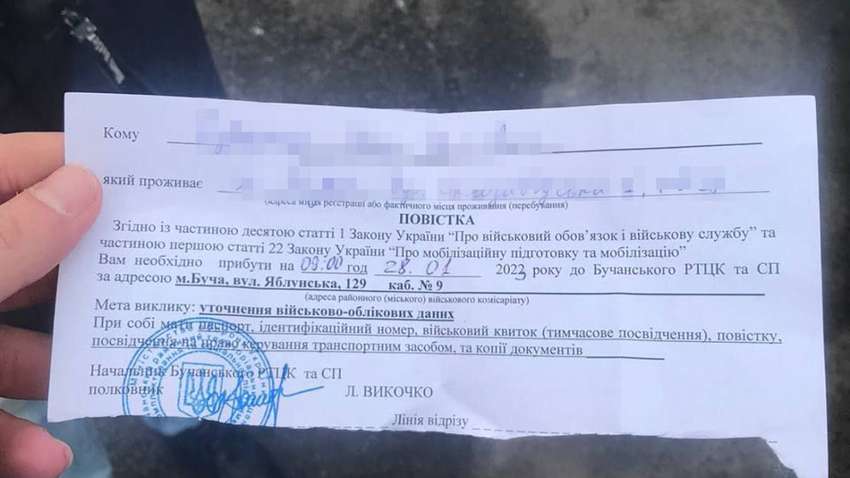 Кому
який проживає
(адреса місця реєстрації або фактичного місця проживання (перебування)
ПОВІСТКА
Згідно із частиною десятою статті 1 Закону України “Про військовий обов’язок і військову службу” та
частиною першою статті 22 Закону України “Про мобілізаційну підготовку та мобілізацію”
Вам необхідно прибути на 09:00 год 28.01 2023 року до Бучанського РТЦК та СП
за адресою м.Буча, вул. Яблунська, 129 каб. № 9
(адреса районного (міського) військового комісаріату)
Мета виклику: уточнення військово-облікових даних
При собі мати паспорт, ідентифікаційний номер, військовий квиток (тимчасове посвідчення), повістку,
посвідчення на право керування транспортним засобом, та копії документів
Начальник Бучанського РТЦК та СП
полковник Л. ВИКОЧКО
Лінія відрізу